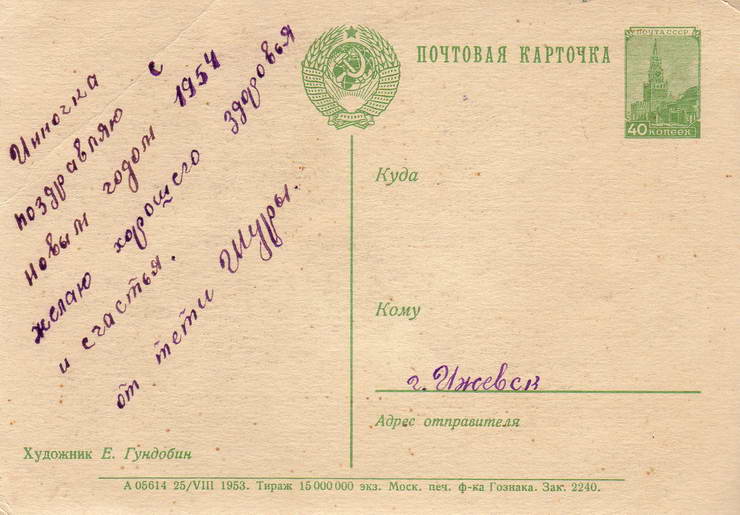 Инночка
поздравляю с
новым годом 1954
желаю хорошего здоровья
и счастья.
от тети Шуры.
Художник Е. Гундобин
ПОЧТОВАЯ КАРТОЧКА
ПОЧТА СССР
40 КОПЕЕК
Куда
Кому
г. Ижевск
Адрес отправителя
А 05614 25/VIII 1953. Тираж 15 000 000 экз. Моск. печ. ф-ка Гознака. Зак. 2240.